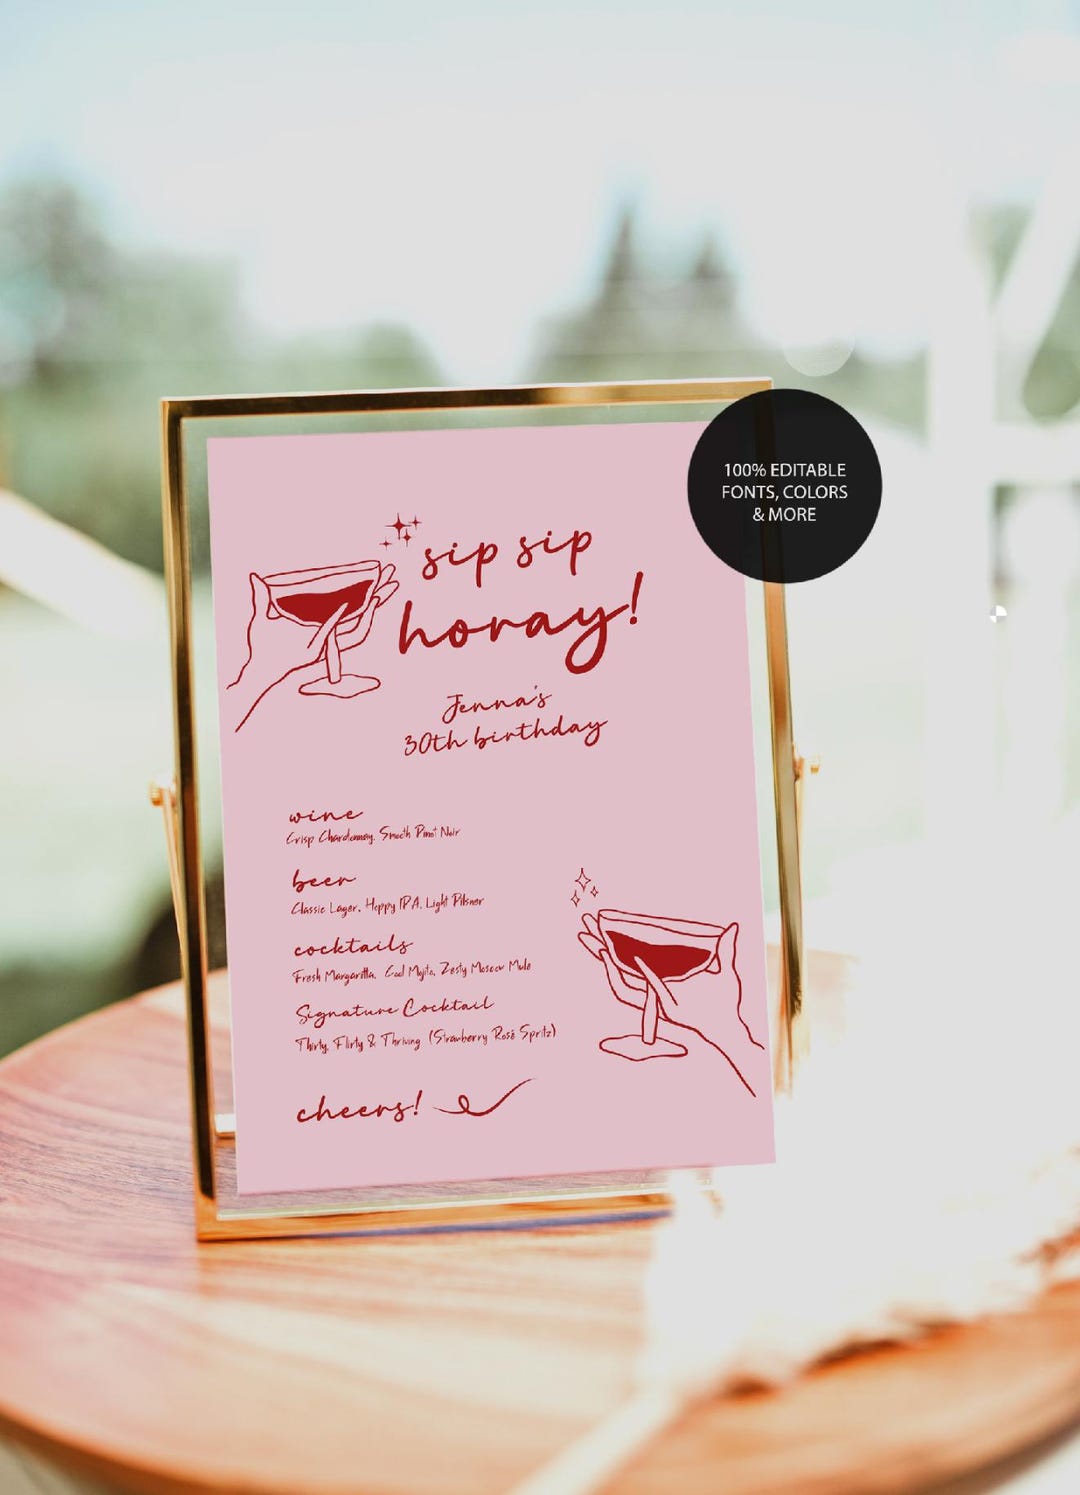 sip sip
horay!
Jenna's
30th birthday
wine
Crisp Chardonnay, Smooth Pinot Noir
beer
Classic Lager, Hoppy IPA, Light Pilsner
cocktails
Fresh Margaritta, Cool Mojito, Zesty Moscow Mule
Signature Cocktail
Thirty, Flirty & Thriving (Strawberry Rosé Spritz)
cheers!
100% EDITABLE
FONTS, COLORS
& MORE